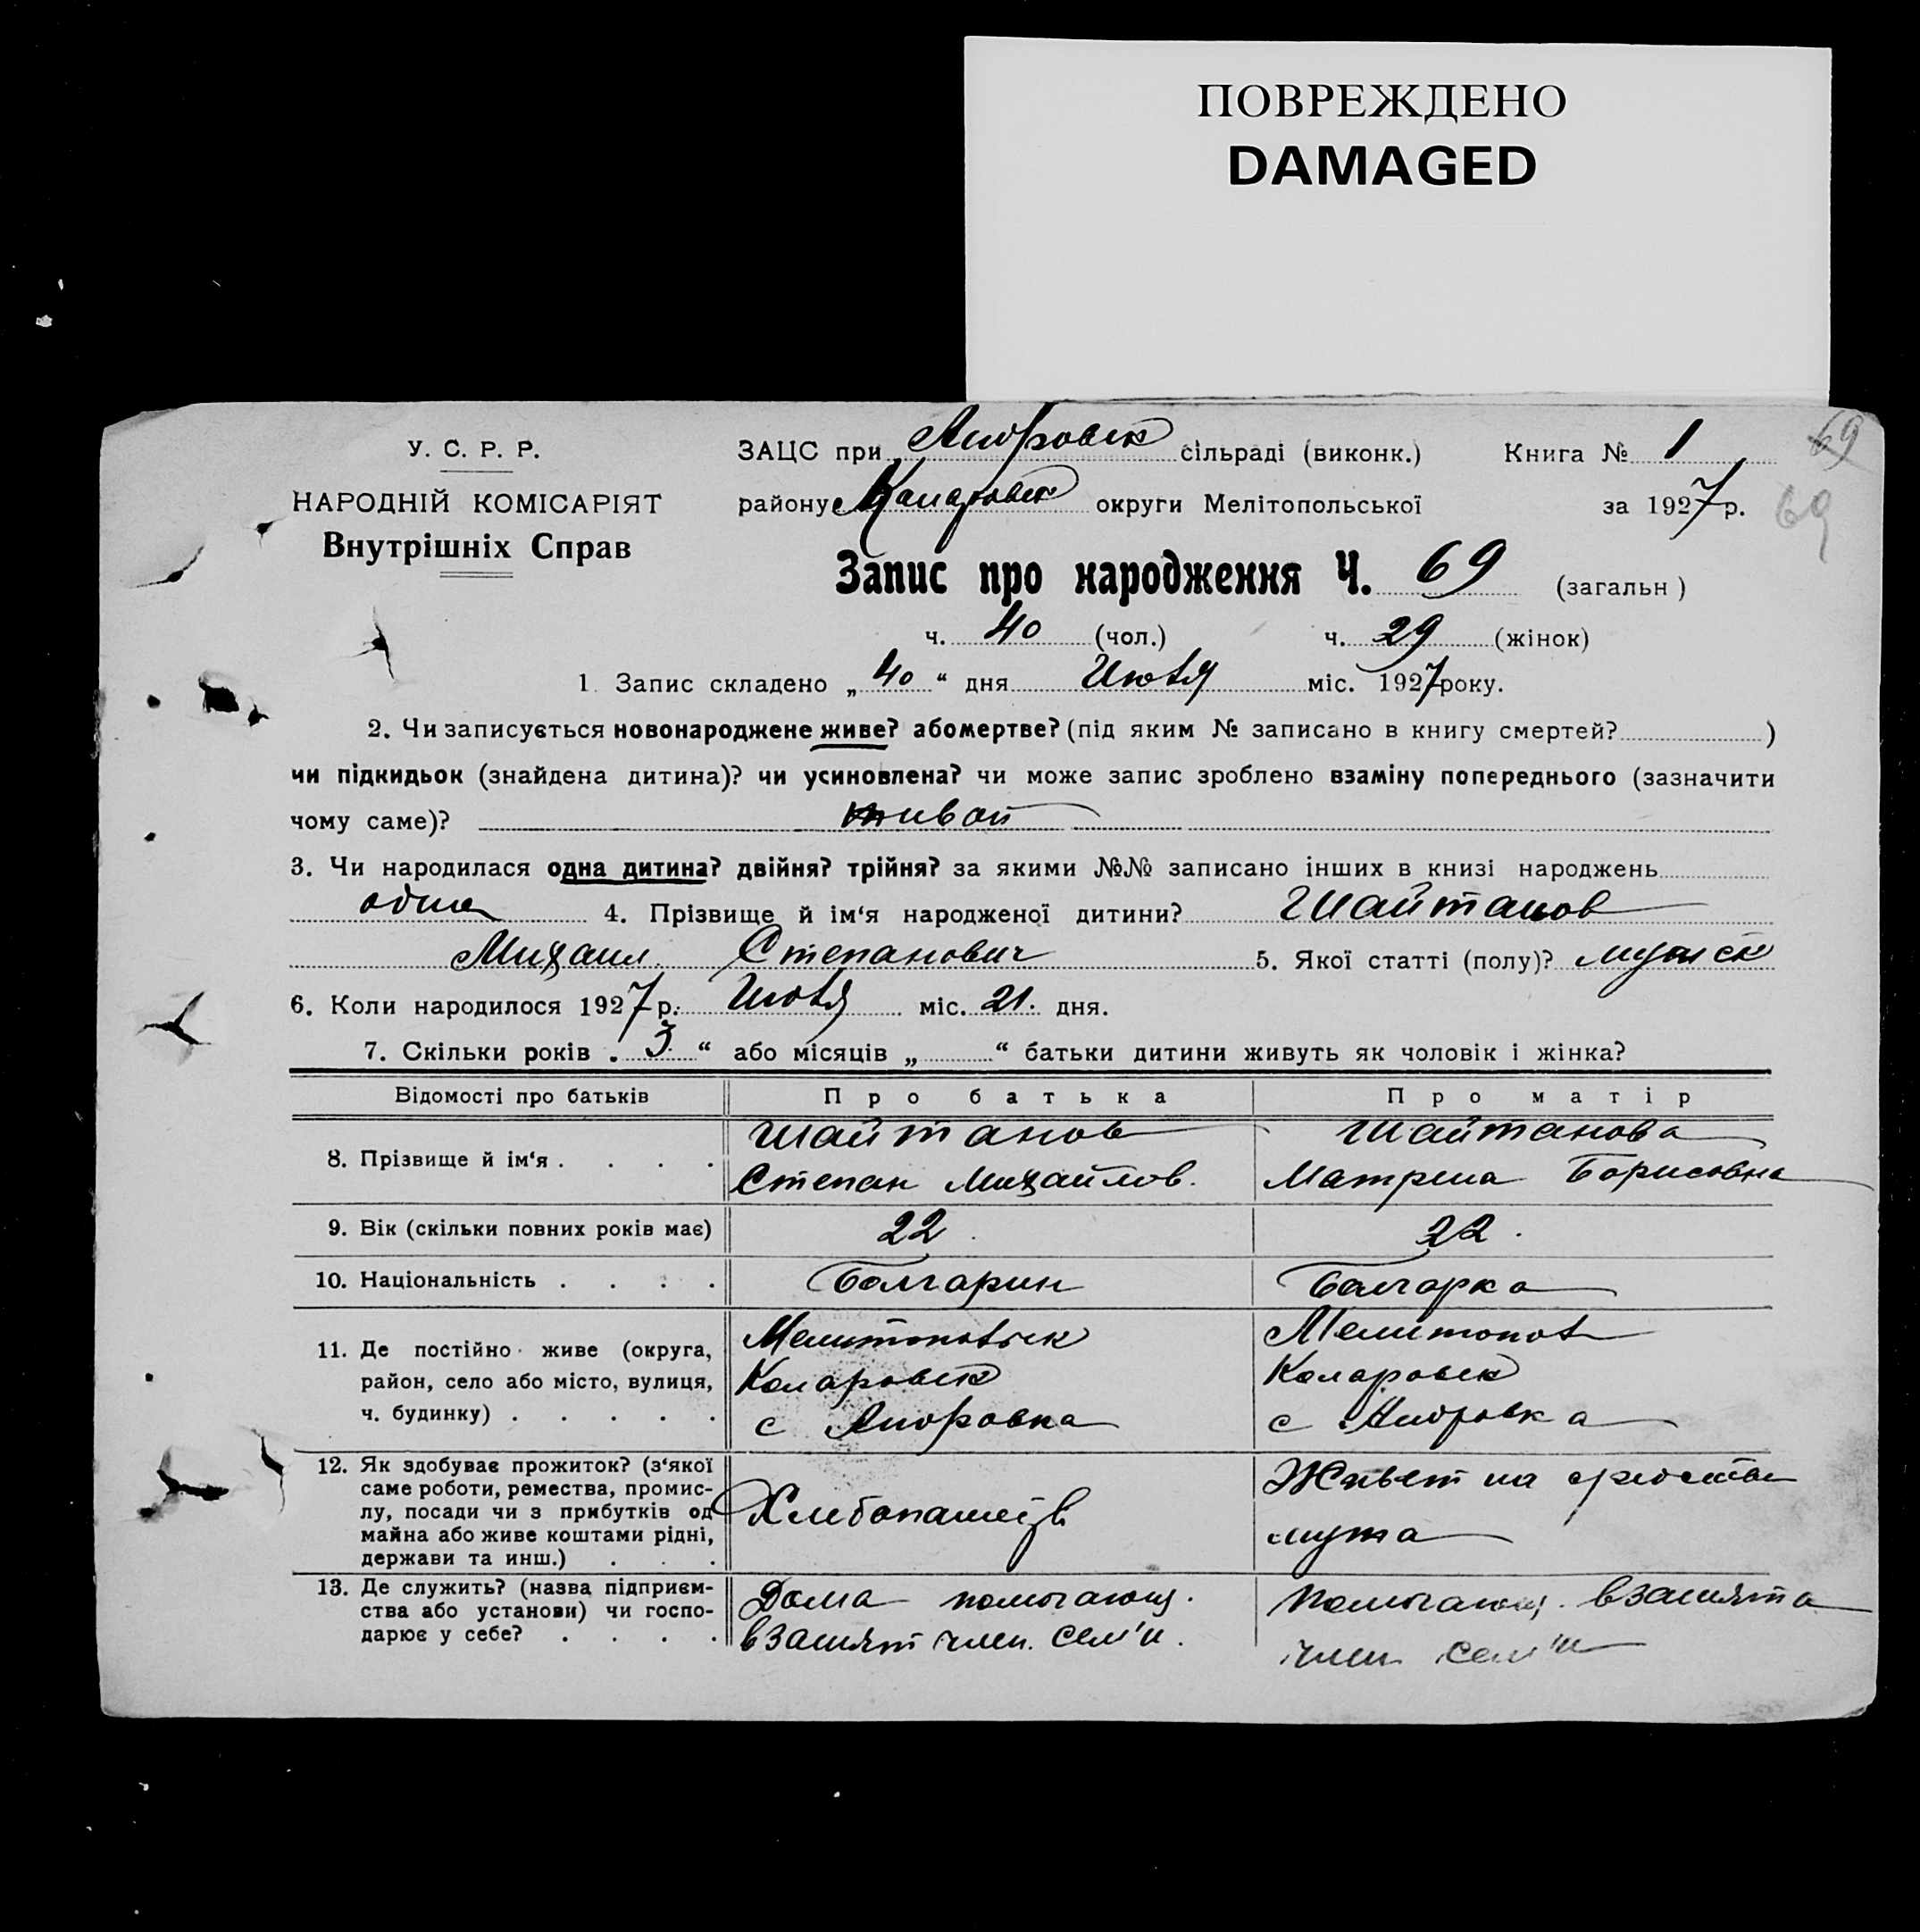 ПОВРЕЖДЕНО
DAMAGED
У. С. Р. Р.
НАРОДНІЙ КОМІСАРІЯТ
Внутрішніх Справ
ЗАЦС при сільраді (виконк.) Книга № 1 69
району Коларовск округи Мелітопольської за 1927 р. 69
Запис про народження Ч. 69 (загальн )
ч. 40 (чол.) ч. 29 (жінок)
1. Запис складено „ 40 “ дня Июля міс. 1927 року.
2. Чи записується новонароджене живе? або мертве? (під яким № записано в книгу смертей? )
чи підкидьок (знайдена дитина)? чи усиновлена? чи може запис зроблено взаміну попереднього (зазначити
чому саме)? живой
3. Чи народилася одна дитина? двійня? трійня? за якими №№ записано інших в книзі народжень
одна 4. Прізвище й ім‘я народженої дитини? Шайтанов
Михаил Степанович 5. Якої статті (полу)? мужск
6. Коли народилося 1927 р. Июля міс. 21. дня.
7. Скільки років „ 3 “ або місяців „ “ батьки дитини живуть як чоловік і жінка?
Відомості про батьків Про батька Про матір
8. Прізвище й ім‘я . . . . Шайтанов Шайтанова
Степан Михайлов. Матрена Борисовна
9. Вік (скільки повних років має) 22. 22.
10. Національність . . . . Болгарин Болгарка
11. Де постійно живе (округа, район, село або місто, вулиця, ч. будинку) . . . . .
Мелитопольск Мелитопол
Коларовск Коларовск
с с
12. Як здобуває прожиток? (з‘якої саме роботи, ремества, промислу, посади чи з прибутків од майна або живе коштами рідні, держави та инш.) . . .
Хлебопашец Живет на средства
мужа
13. Де служить? (назва підприємства або установи) чи господарює у себе? . . . .
Дома помогающ. Помогающ. взанята
взанят член. сем'и. член сем'и